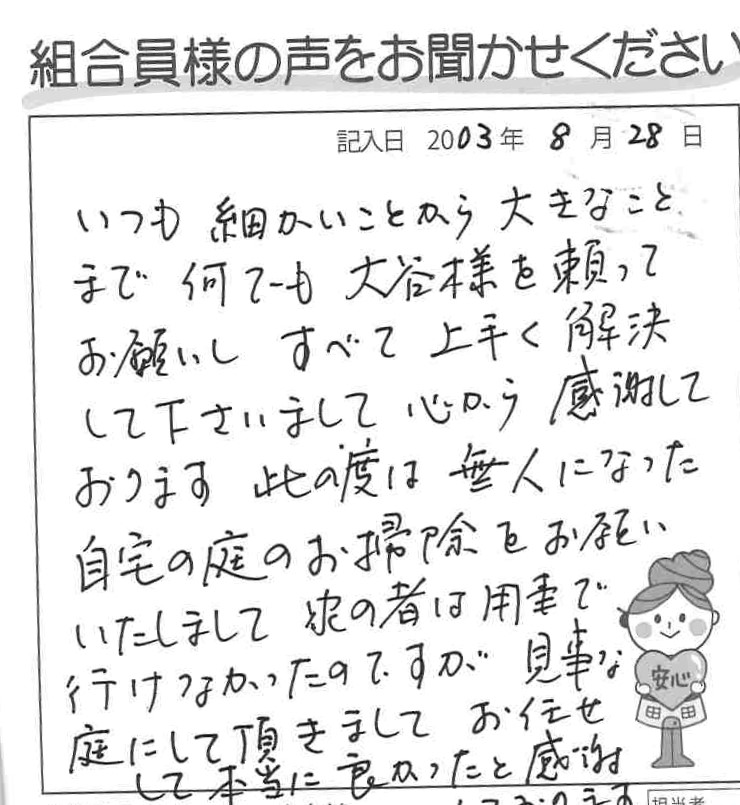 組合員様の声をお聞かせください
記入日 2003年 8月 28日
いつも 細かいことから 大きなこと
まで 何でも 大谷様を頼って
お願いし すべて 上手く 解決
して下さいまして 心から 感謝して
おります 此の度は 無人になった
自宅の庭のお掃除をお願い
いたしまして 家の者は用事で
行けなかったのですが 見事な
庭にして頂きまして お任せ
して本当に良かったと感謝
安心
ております
担当者